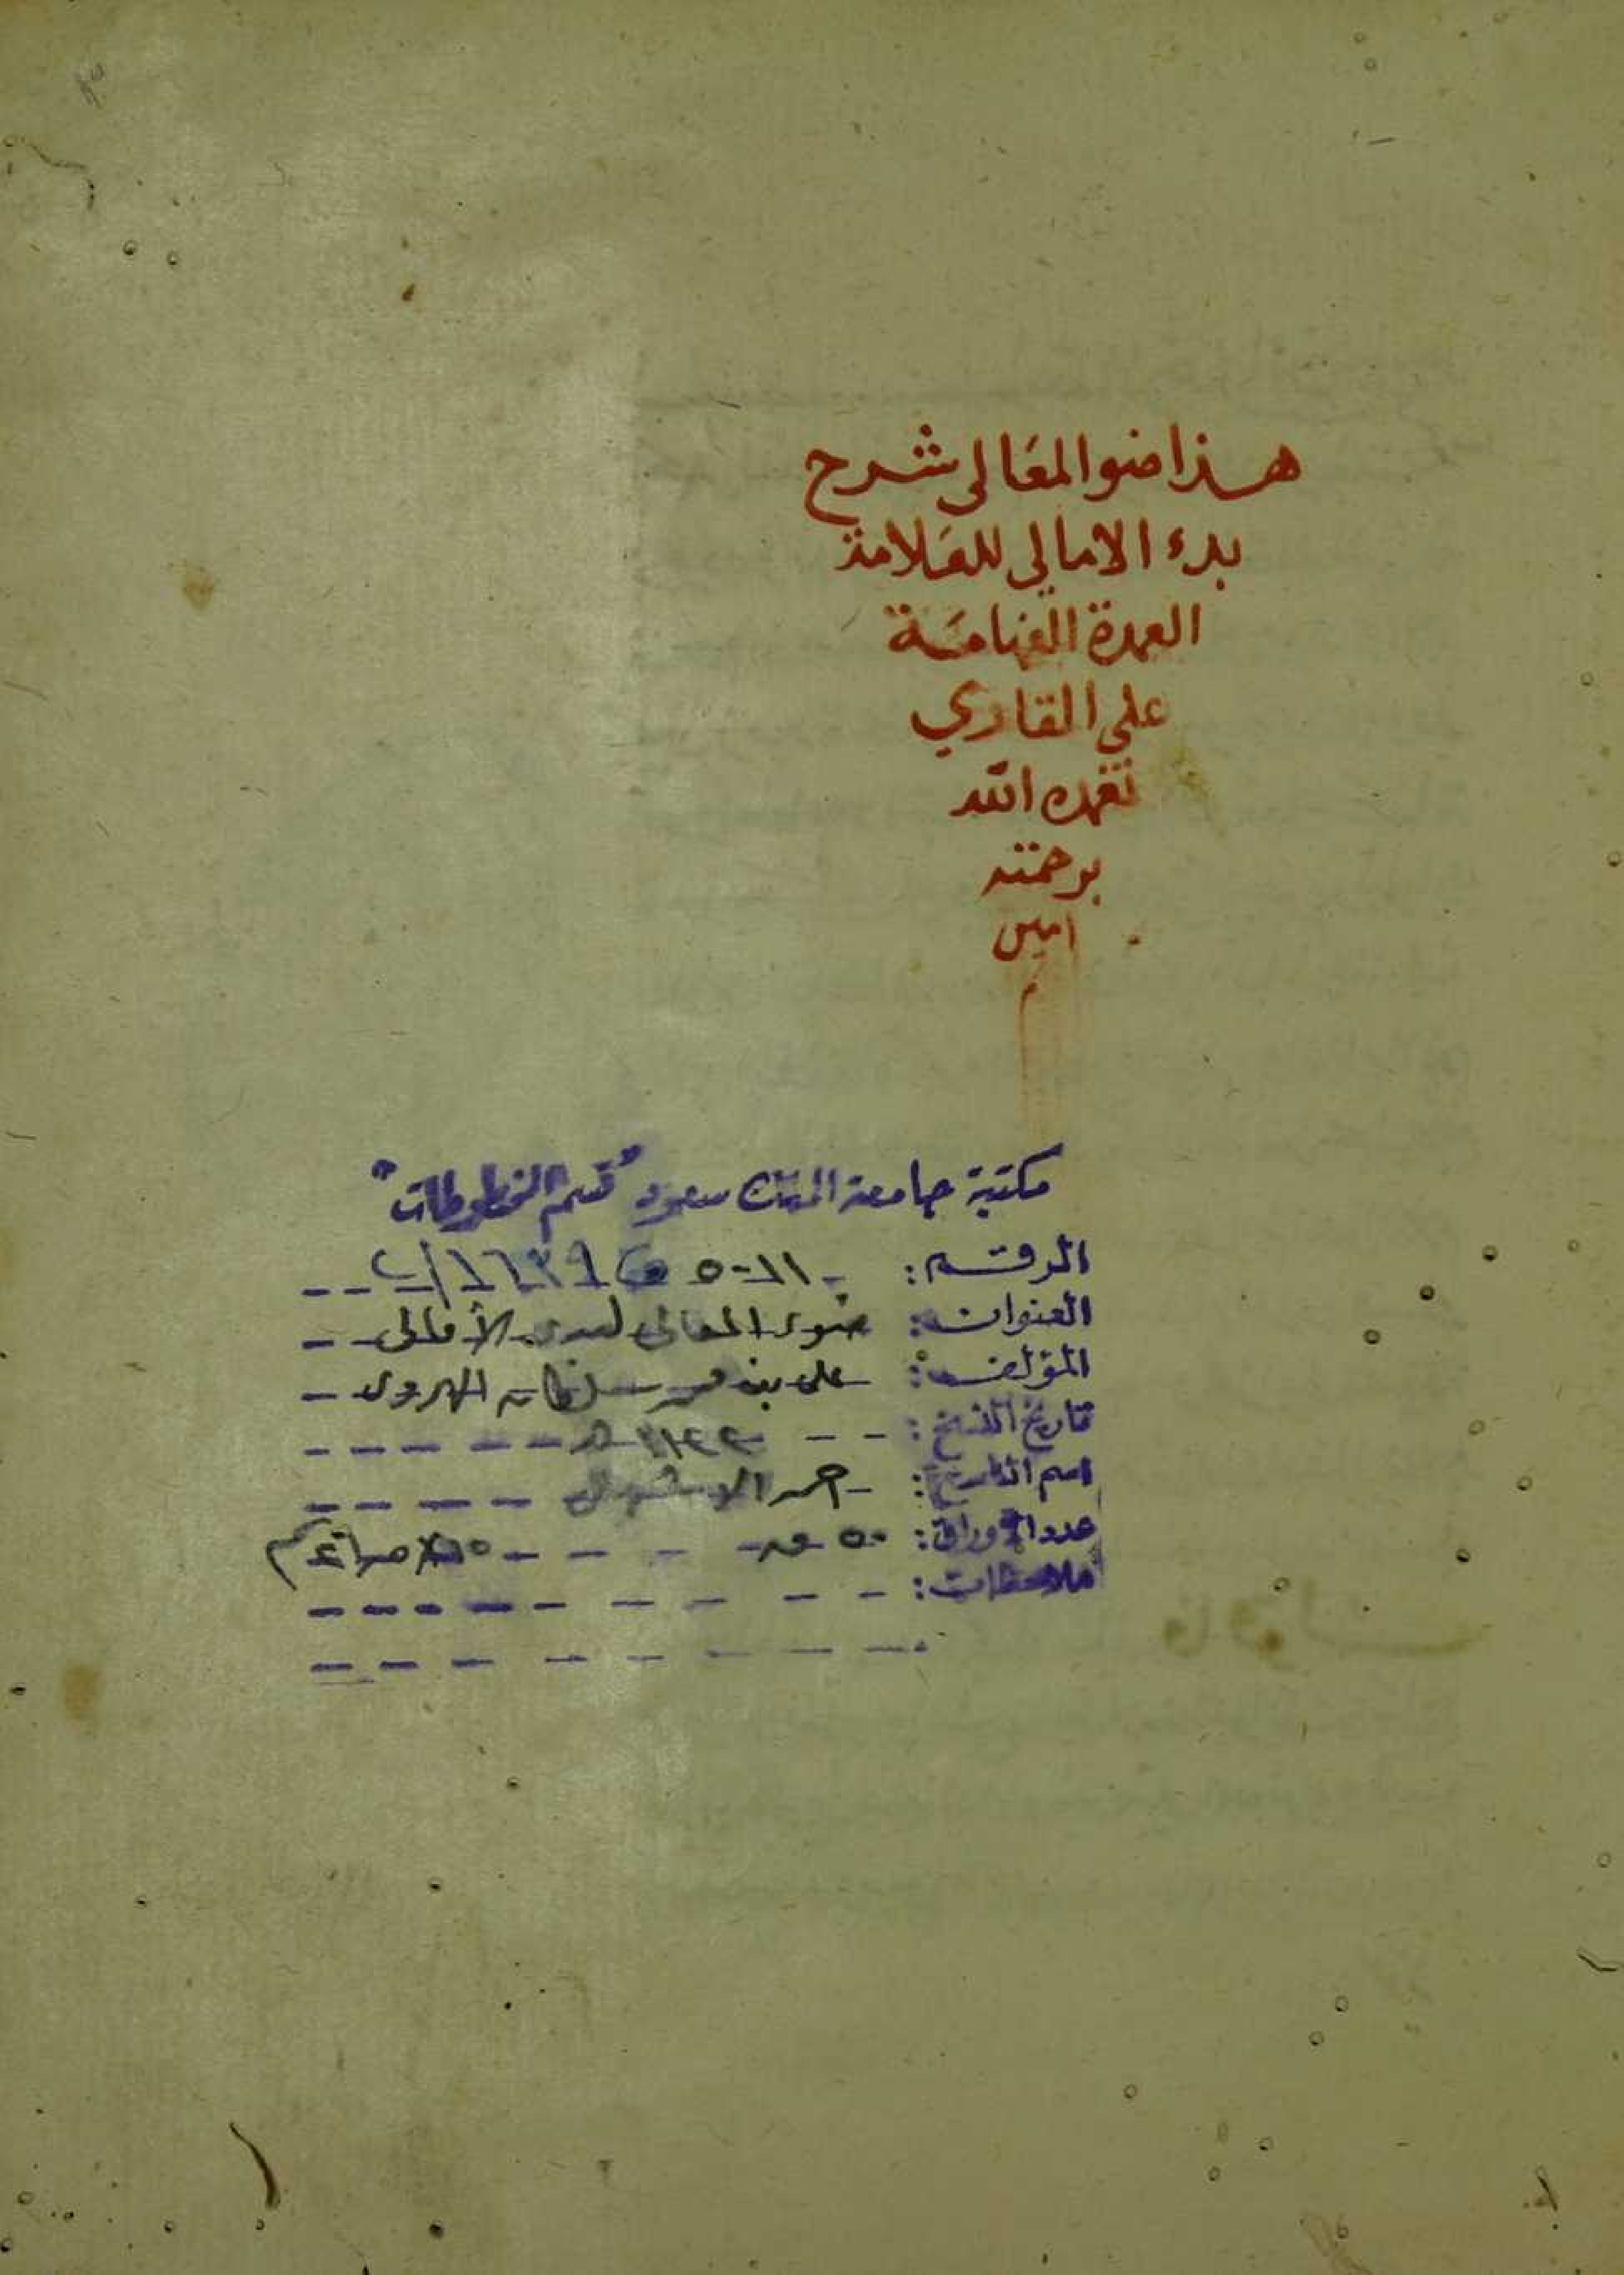 هذا ضوا المعَالى شرح
بدء الامالى للعَلامة
العمدة الفهامَة
على القاري
تغمده الله
برحمته
امين
م
مكتبة جامعة الملك سعود "قسم المخطوطات"
الرقم: ٥٠١١
العنوان: ضوء المعالى لبدء الأمالى
المؤلف: على بن سلطان الهروى
تاريخ النسخ:
اسم الناسخ: احمد
عدد الأوراق: ٥٠ ق
ملاحظات: